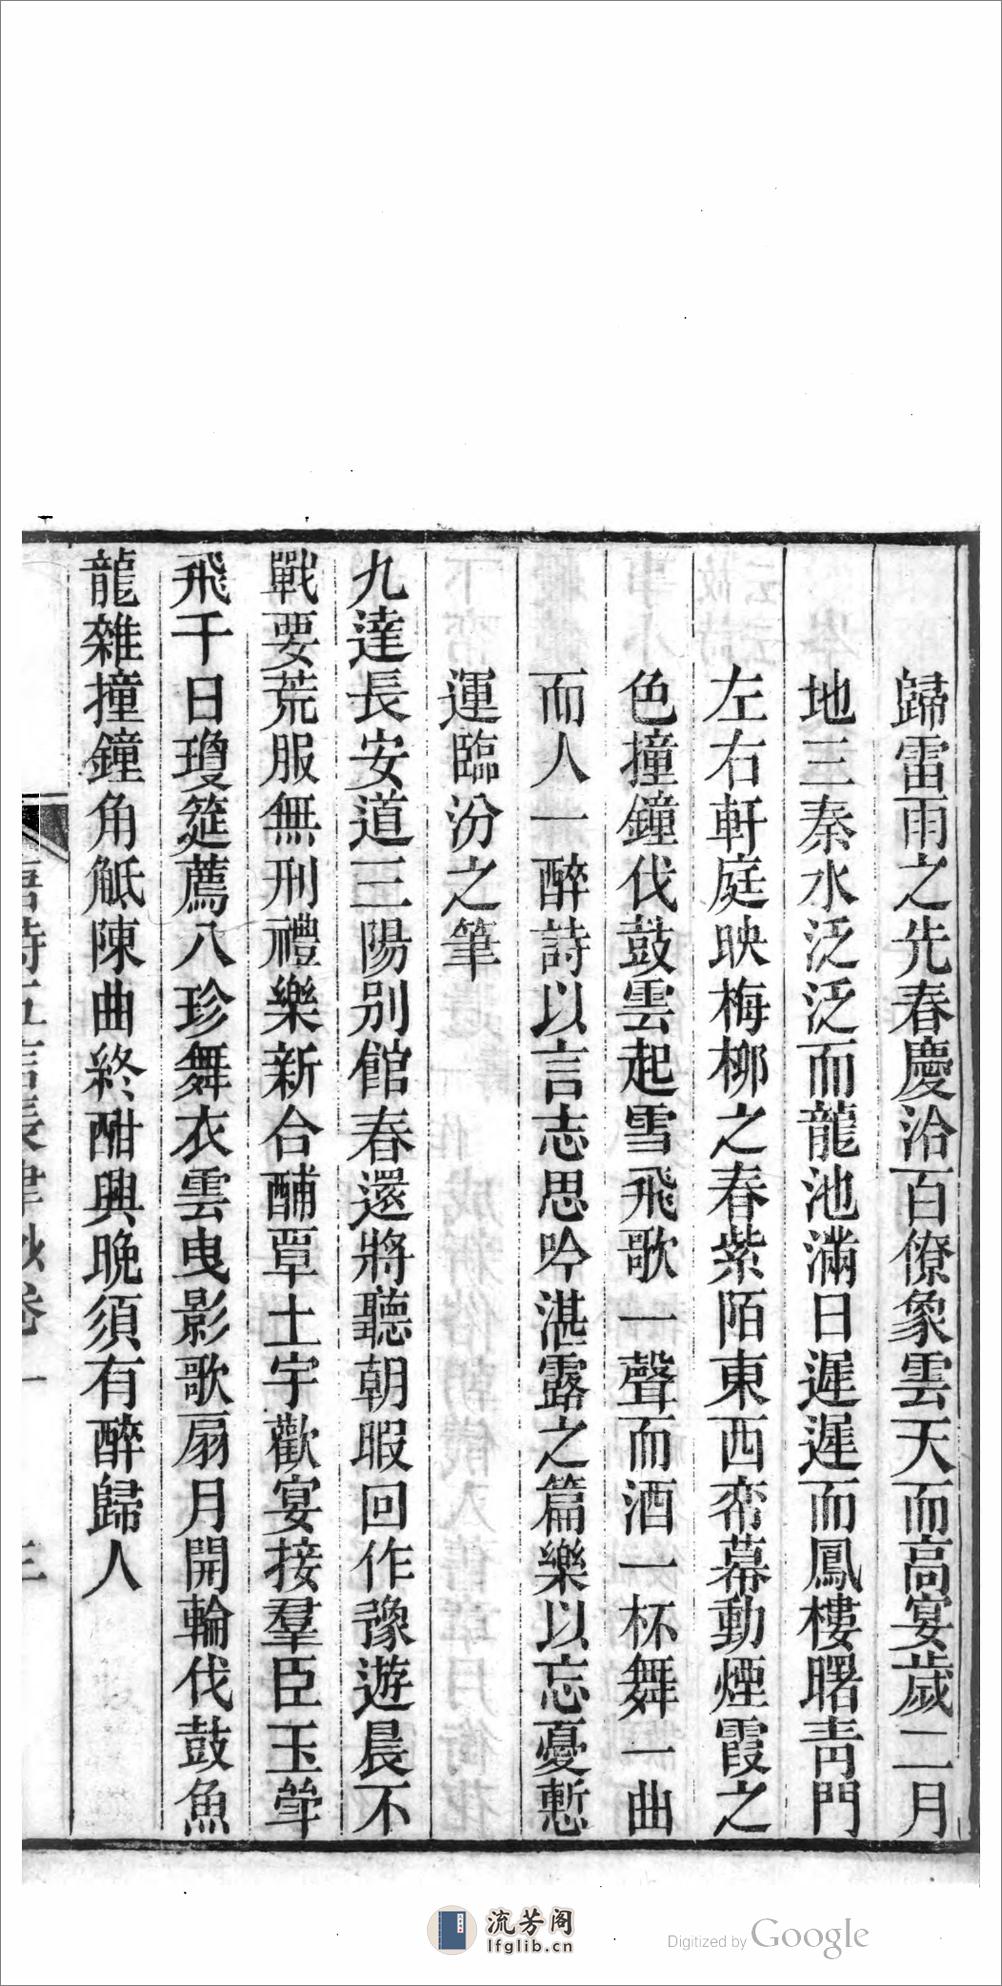 歸雷雨之先春慶洽百僚象雲天而高宴歲二月
地三秦水泛泛而龍池滿日遲遲而鳳樓曙青門
左右軒庭映梅柳之春紫陌東西帟幕動煙霞之
色撞鐘伐鼓雲起雪飛歌一聲而酒一杯舞一曲
而人一醉詩以言志思吟湛露之篇樂以忘憂慙
運臨汾之筆
九達長安道三陽別館春還將聽朝暇回作豫遊晨不
戰要荒服無刑禮樂新合酺覃土宇歡宴接羣臣玉斝
飛千日瓊筵薦八珍舞衣雲曳影歌扇月開輪伐鼓魚
龍雜撞鐘角觝陳曲終酣興晚須有醉歸人
唐詩五言長律 卷一 三
流芳阁
lfglib.cn
Digitized by Google